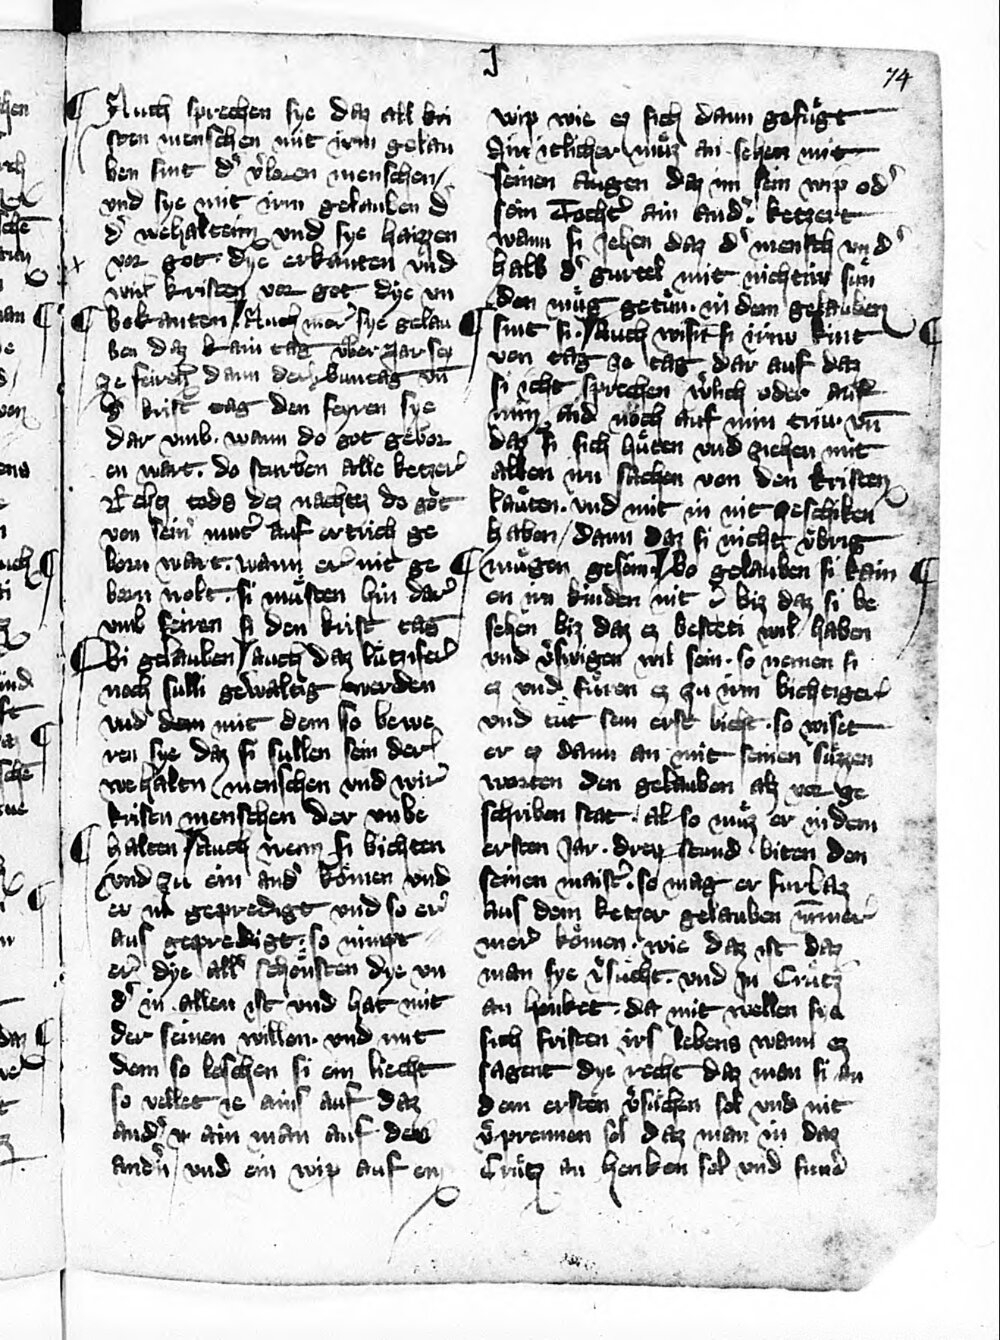 J
74
Auch sprechen sye daz all kri
sten menschen mit irm gelau
ben sint d' v'loren menschen /
vnd sye mit irm gelauben d'
d' wehalteim vnd sye haizzen
vor got · dye erkanten vnd
wir kristen vor got dye vn
bekanten / Auch mer sye gelau
ben daz kain tag über jar sey
ze feiren dann der suntag vn̄
d' krist tag den feyren sye
dar vmb · wann do got gebor
en wart · do sturben alle ketzer
tods dez nachtez do got
von sein' mut' auf ertrich ge
born wart · wann er nit ge
born wolt · si müsten hin dar
vmb feiren si den krist tag
Si gelauben / auch daz
noch sülli gewaltig werden
vnd dem mit dem so bewe
ren sye daz si sullen sein der
wehaltn menschen vnd wir
kristen menschen der vnbe
halten / Auch wenn si bichten
vnd zu ein and' kömen vnd
er in gepredigt vnd so er
aus gepredigt · so nimpt
er dye all' schönsten dye vn
d' in allen ist vnd hat mit
der seinen willen · vnd mit
dem so leschen si ein liecht
so vellet ie ains auf daz
and' ain man auf den
andn̄ / vnd ein wip auf ein
wip wie ez sich dann gefügt
Ain itlicher müz an sehen mit
seinen augen daz im sein wip od'
sein Tocht' ain and' ketzert
wann si jehen daz d' mensch vnd'
halb d' gurtel mit nichtiw sün
den müg getün · in dem gelauben
sint si · / Auch wisit si iriw kint
von tag ze tag dar auf daz
si icht sprechen wlich oder auf
min aid noch auf min triu · vn̄
daz si sich hüten vnd ziehen mit
allen irn sachen von den kristen
läuten · vnd mit in nit geschiken
haben / dann daz si nicht übrig
mügen gesein / So gelauben si kain
en irn kinden nit biz daz si be
sehen biz daz ez besteti wil / haben
vnd v'swigen wil sein · so nemen si
ez vnd füren ez zu irm bichtiger
vnd tüt sein erst bicht · so wiset
er ez dann an mit seinen süzzen
worten den gelauben alz vor ge
schriben stat · al so müz er in dem
ersten jar · drey stund · biten den
seinen maist' · so mag er furbaz
aus dem ketzer gelauben nīmer
mer kömen · wie daz ist daz
man sye v'sücht · vnd in Crütz
an henket · da mit wellen sye
sich fristen irs lebens wann ez
sagent dye recht daz man si an
dem ersten v'süchen sol vnd nit
v'prennen sol daz man in daz
Crütz an henken sol vnd sünd'